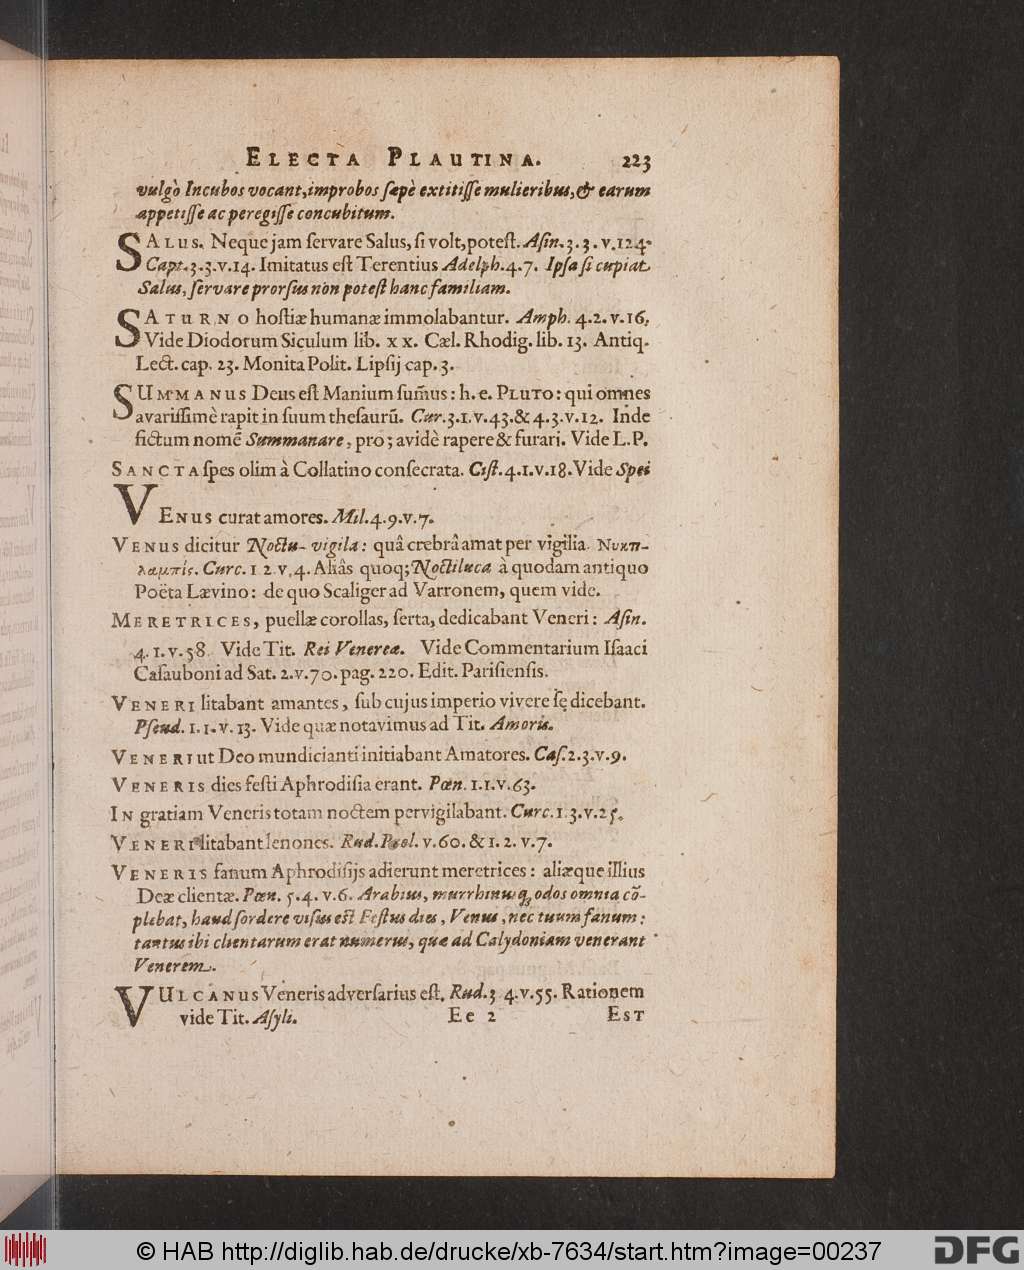 ELECTA PLAUTINA. 223
vulgò Incubos vocant, improbos sæpè extitisse mulieribus, & earum
appetisse ac peregisse concubitum.
SALUS. Neque jam servare Salus, si volt, potest. Asin. 3. 3. v. 124.
Capt. 3. 3. v. 14. Imitatus est Terentius Adelph. 4. 7. Ipsa si cupiat
Salus, servare prorsus non potest hanc familiam.
SATURNO hostiæ humanæ immolabantur. Amph. 4. 2. v. 16.
Vide Diodorum Siculum lib. xx. Cæl. Rhodig. lib. 13. Antiq.
Lect. cap. 23. Monita Polit. Lipsij cap. 3.
SUMMANUS Deus est Manium sum̃us: h. e. PLUTO: qui omnes
avarissimè rapit in suum thesaurũ. Cur. 3. 1. v. 43. & 4. 3. v. 12. Inde
fictum nomẽ Summanare, pro; avidè rapere & furari. Vide L. P.
SANCTA spes olim à Collatino consecrata. Cist. 4. 1. v. 18. Vide Spei
VENUS curat amores. Mil. 4. 9. v. 7.
VENUS dicitur Noctu-vigila: quâ crebrâ amat per vigilia. Νυκτι-
λαμπίς. Curc. 1 2 v. 4. Aliâs quoq; Noctiluca à quodam antiquo
Poëta Lævino: de quo Scaliger ad Varronem, quem vide.
MERETRICES, puellæ corollas, serta, dedicabant Veneri: Asin.
4. 1. v. 58. Vide Tit. Rei Venereæ. Vide Commentarium Isaaci
Casauboni ad Sat. 2. v. 70. pag. 220. Edit. Parisiensis.
VENERI litabant amantes, sub cujus imperio vivere se dicebant.
Pseud. 1. 1. v. 13. Vide quæ notavimus ad Tit. Amoris.
VENERI ut Deo mundicianti initiabant Amatores. Cas. 2. 3. v. 9.
VENERIS dies festi Aphrodisia erant. Pœn. 1. 1. v. 63.
IN gratiam Veneris totam noctem pervigilabant. Curc. 1. 3. v. 25.
VENERI litabant lenones. Rud. Prol. v. 60. & 1. 2. v. 7.
VENERIS fanum Aphrodisijs adierunt meretrices: aliæque illius
Deæ clientæ. Pœn. 5. 4. v. 6. Arabius, murrhinusq; odos omnia cõ-
plebat, haud sordere visus est Festus dies, Venus, nec tuum fanum:
tantus ibi clientarum erat numerus, quæ ad Calydoniam venerant
Venerem.
VULCANUS Veneris adversarius est. Rud. 3 4. v. 55. Rationem
vide Tit. Asyli. Ee 2 EST
© HAB http://diglib.hab.de/drucke/xb-7634/start.htm?image=00237 DFG